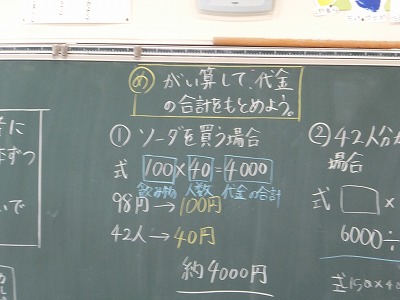 め がい算して、代金
の合計をもとめよう。
① ソーダを買う場合
式 100×40=4000
飲み物 人数 代金の合計
98円→100円
42人→40円
約4000円
②42人分
場合
式 □×
6000÷
式150×40
者に
ずつ
いで